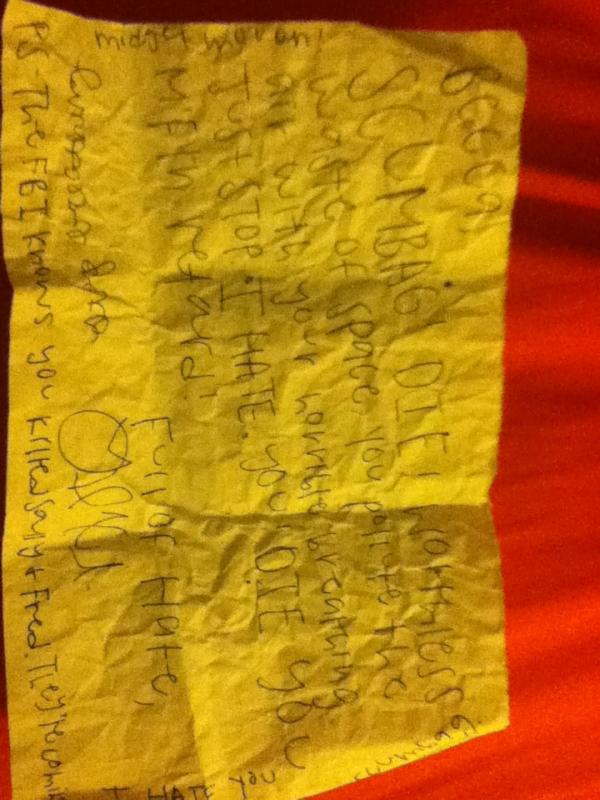 SCUMBAG! DIE! Worthless
waste of space, you pollute the
air with your horrible breathing.
JUST STOP. I HATE. you. DIE you
MF'n retard!
Full of Hate,
PS- The FBI knows you killed Sally + Fred. They're comin
I HATE